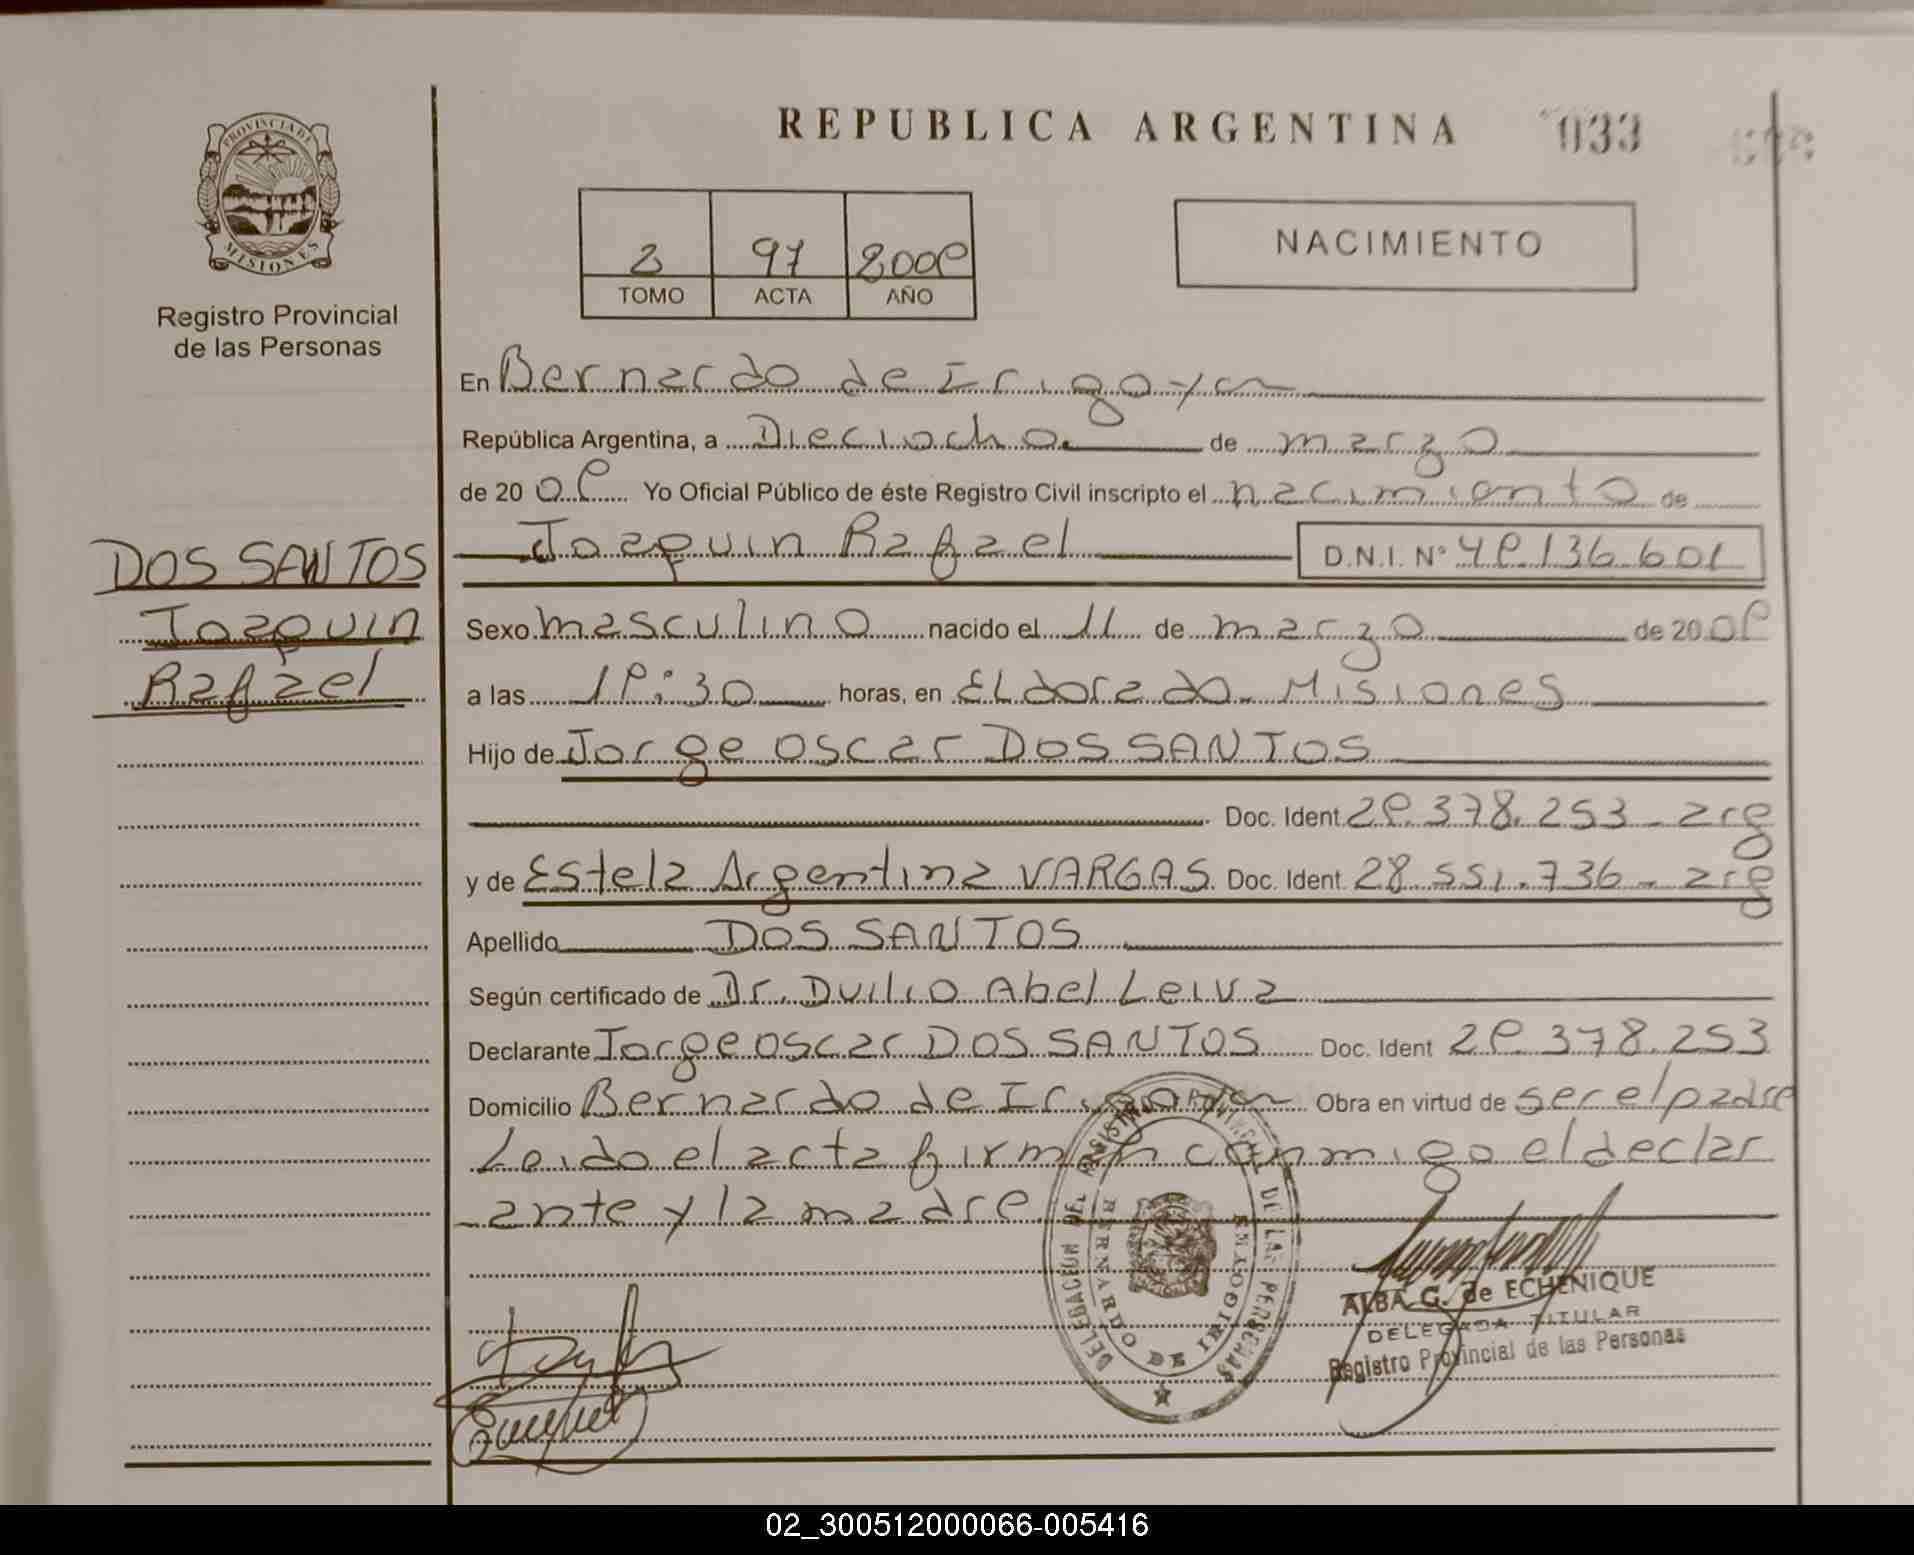 PROVINCIA DE
MISIONES
Registro Provincial
de las Personas
REPUBLICA ARGENTINA 033
2 97 2009
TOMO ACTA AÑO
NACIMIENTO
En Bernardo de Irigoyen
República Argentina, a Dieciocho. de marzo
de 20 09 Yo Oficial Público de éste Registro Civil inscripto el nacimiento de
Joaquin Rafael D.N.I. Nº 49.136.601
DOS SANTOS
Joaquin
Rafael
Sexo masculino nacido el 11 de marzo de 20 09
a las 19:30 horas, en Eldorado - Misiones
Hijo de Jorge Oscar DOS SANTOS
Doc. Ident 29.378.253 - arg
y de Estela Argentina VARGAS Doc. Ident 28.551.736 - arg
Apellido DOS SANTOS
Según certificado de Dr. Duilio Abel Leiva
Declarante Jorge Oscar DOS SANTOS Doc. Ident 29.378.253
Domicilio Bernardo de Irigoyen Obra en virtud de ser el padre
Leido el acta firman conmigo el declar
ante y la madre
DELEGACION DEL REGISTRO PROVINCIAL DE LAS PERSONAS
BERNARDO DE IRIGOYEN
ALBA G. de ECHENIQUE
DELEGADA TITULAR
Registro Provincial de las Personas
02_300512000066-005416